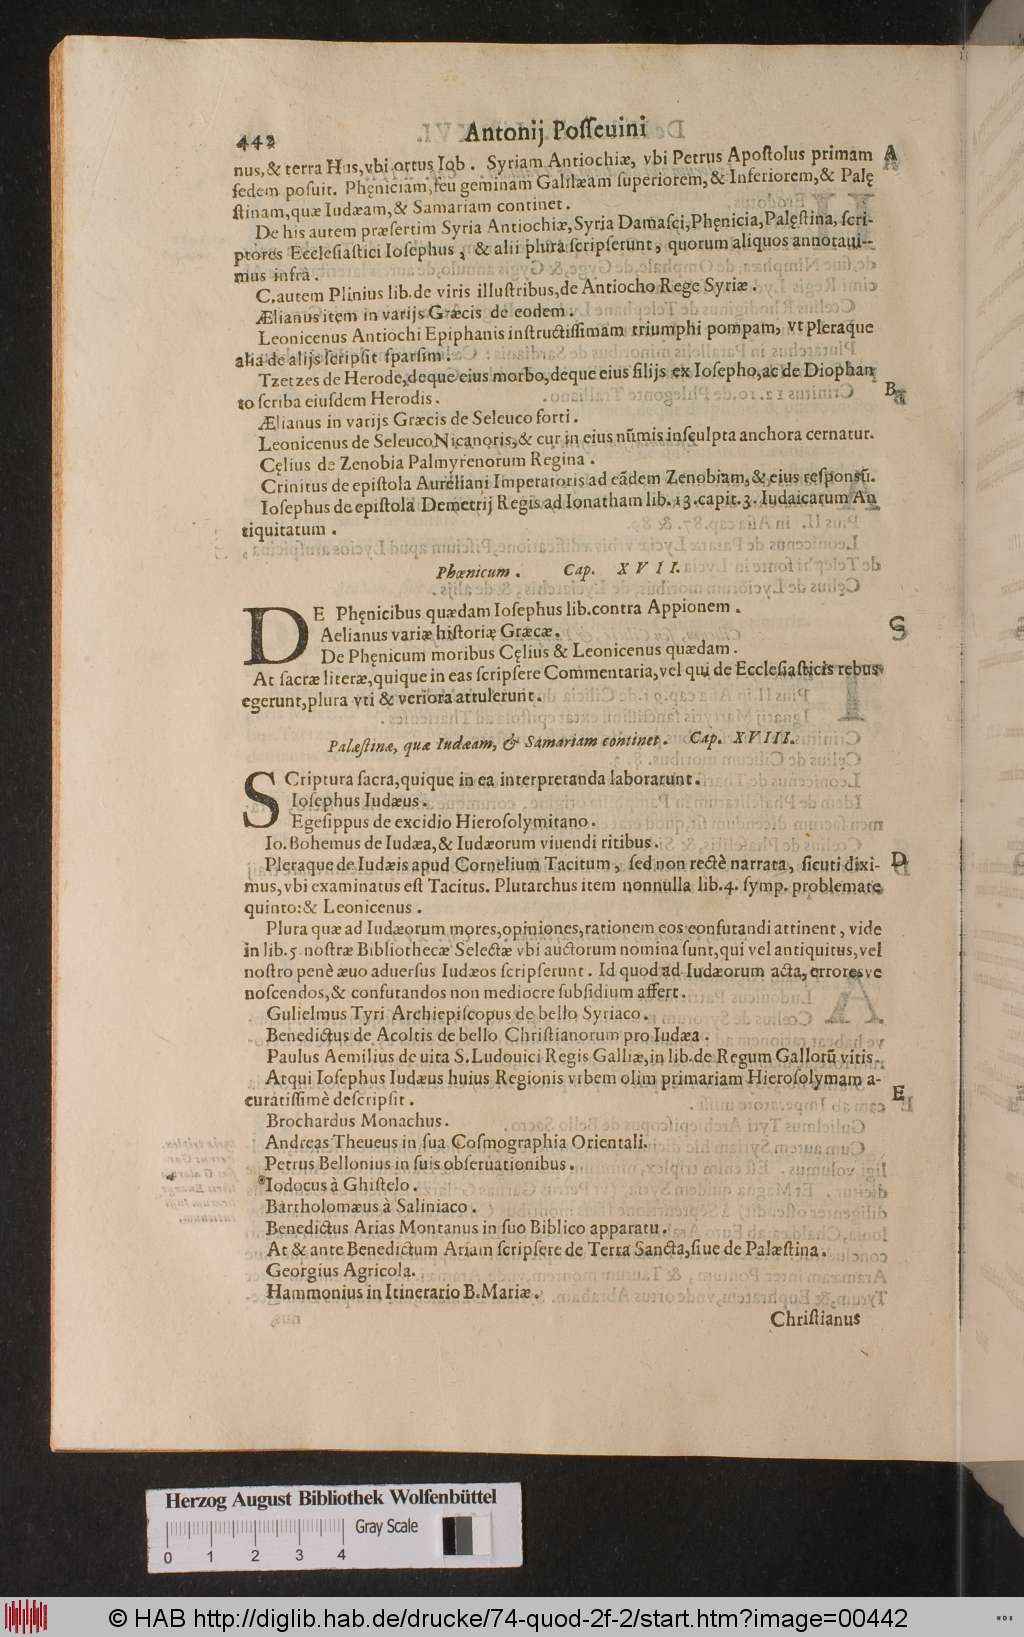 442 Antonij Posseuini
nus, & terra Hus, vbi ortus Iob. Syriam Antiochiæ, vbi Petrus Apostolus primam A
sedem posuit. Phęniciam, seu geminam Galilæam superiorem, & Inferiorem, & Palę
stinam, quæ Iudæam, & Samariam continet.
De his autem præsertim Syria Antiochiæ, Syria Damasci, Phęnicia, Palęstina, scri-
ptores Ecclesiastici Iosephus, & alii plura scripserunt, quorum aliquos annotaui-
mus infrà.
C. autem Plinius lib. de viris illustribus, de Antiocho Rege Syriæ.
Ælianus item in varijs Græcis de eodem.
Leonicenus Antiochi Epiphanis instructissimam triumphi pompam, vt pleraque
alia de alijs scripsit sparsim.
Tzetzes de Herode, deque eius morbo, deque eius filijs ex Iosepho, ac de Diophan
to scriba eiusdem Herodis. B
Ælianus in varijs Græcis de Seleuco forti.
Leonicenus de Seleuco Nicanoris, & cur in eius nũmis insculpta anchora cernatur.
Cęlius de Zenobia Palmyrenorum Regina.
Crinitus de epistola Aureliani Imperatoris ad eãdem Zenobiam, & eius responsũ.
Iosephus de epistola Demetrij Regis ad Ionatham lib. 13. capit. 3. Iudaicarum An
tiquitatum.
Phœnicum. Cap. XVII.
DE Phęnicibus quædam Iosephus lib. contra Appionem. C
Aelianus variæ historię Græcæ.
De Phęnicum moribus Cęlius & Leonicenus quædam.
At sacræ literæ, quique in eas scripsere Commentaria, vel qui de Ecclesiasticis rebus
egerunt, plura vti & veriora attulerunt.
Palæstinæ, quæ Iudæam, & Samariam continet. Cap. XVIII.
SCriptura sacra, quique in ea interpretanda laborarunt.
Iosephus Iudæus.
Egesippus de excidio Hierosolymitano.
Io. Bohemus de Iudæa, & Iudæorum viuendi ritibus.
Pleraque de Iudæis apud Cornelium Tacitum, sed non rectè narrata, sicuti dixi- D
mus, vbi examinatus est Tacitus. Plutarchus item nonnulla lib. 4. symp. problemate
quinto: & Leonicenus.
Plura quæ ad Iudæorum mores, opiniones, rationem eos confutandi attinent, vide
in lib. 5 nostræ Bibliothecæ Selectæ vbi auctorum nomina sunt, qui vel antiquitus, vel
nostro penè æuo aduersus Iudæos scripserunt. Id quod ad Iudæorum acta, erroresve
noscendos, & confutandos non mediocre subsidium affert.
Gulielmus Tyri Archiepiscopus de bello Syriaco.
Benedictus de Acoltis de bello Christianorum pro Iudæa.
Paulus Aemilius de uita S. Ludouici Regis Galliæ, in lib. de Regum Gallorũ vitis.
Atqui Iosephus Iudæus huius Regionis vrbem olim primariam Hierosolymam a-
curatissimè descripsit. E
Brochardus Monachus.
Andreas Theueus in sua Cosmographia Orientali.
Petrus Bellonius in suis obseruationibus.
Iodocus à Ghistelo.
Bartholomæus à Saliniaco.
Benedictus Arias Montanus in suo Biblico apparatu.
At & ante Benedictum Ariam scripsere de Terra Sancta, siue de Palæstina.
Georgius Agricola.
Hammonius in Itinerario B. Mariæ.
Christianus
Herzog August Bibliothek Wolfenbüttel
Gray Scale
0 1 2 3 4
© HAB http://diglib.hab.de/drucke/74-quod-2f-2/start.htm?image=00442